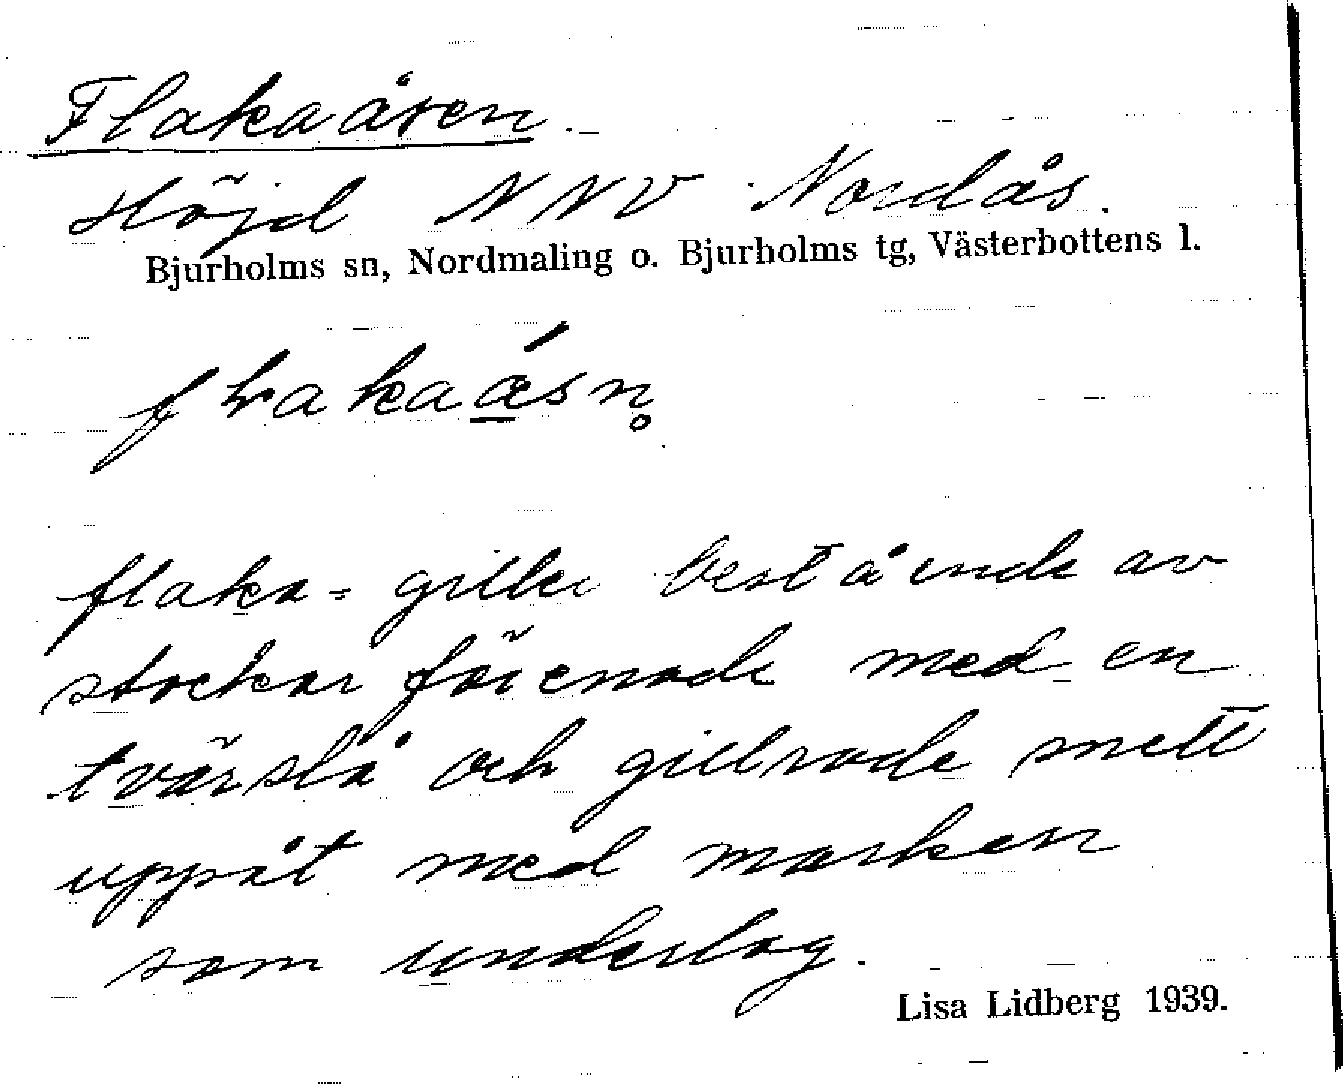 Flakaåsen.
Höjd NNV Nordås.
Bjurholms sn, Nordmaling o. Bjurholms tg, Västerbottens l.
flaka = giller bestående av
stockar förenade med en
tvärslå och gillrade snett
uppåt med marken
som underlag.
Lisa Lidberg 1939.